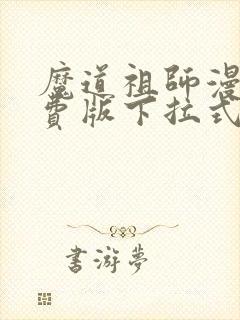 魔道祖師漫
費版下拉式
書游夢